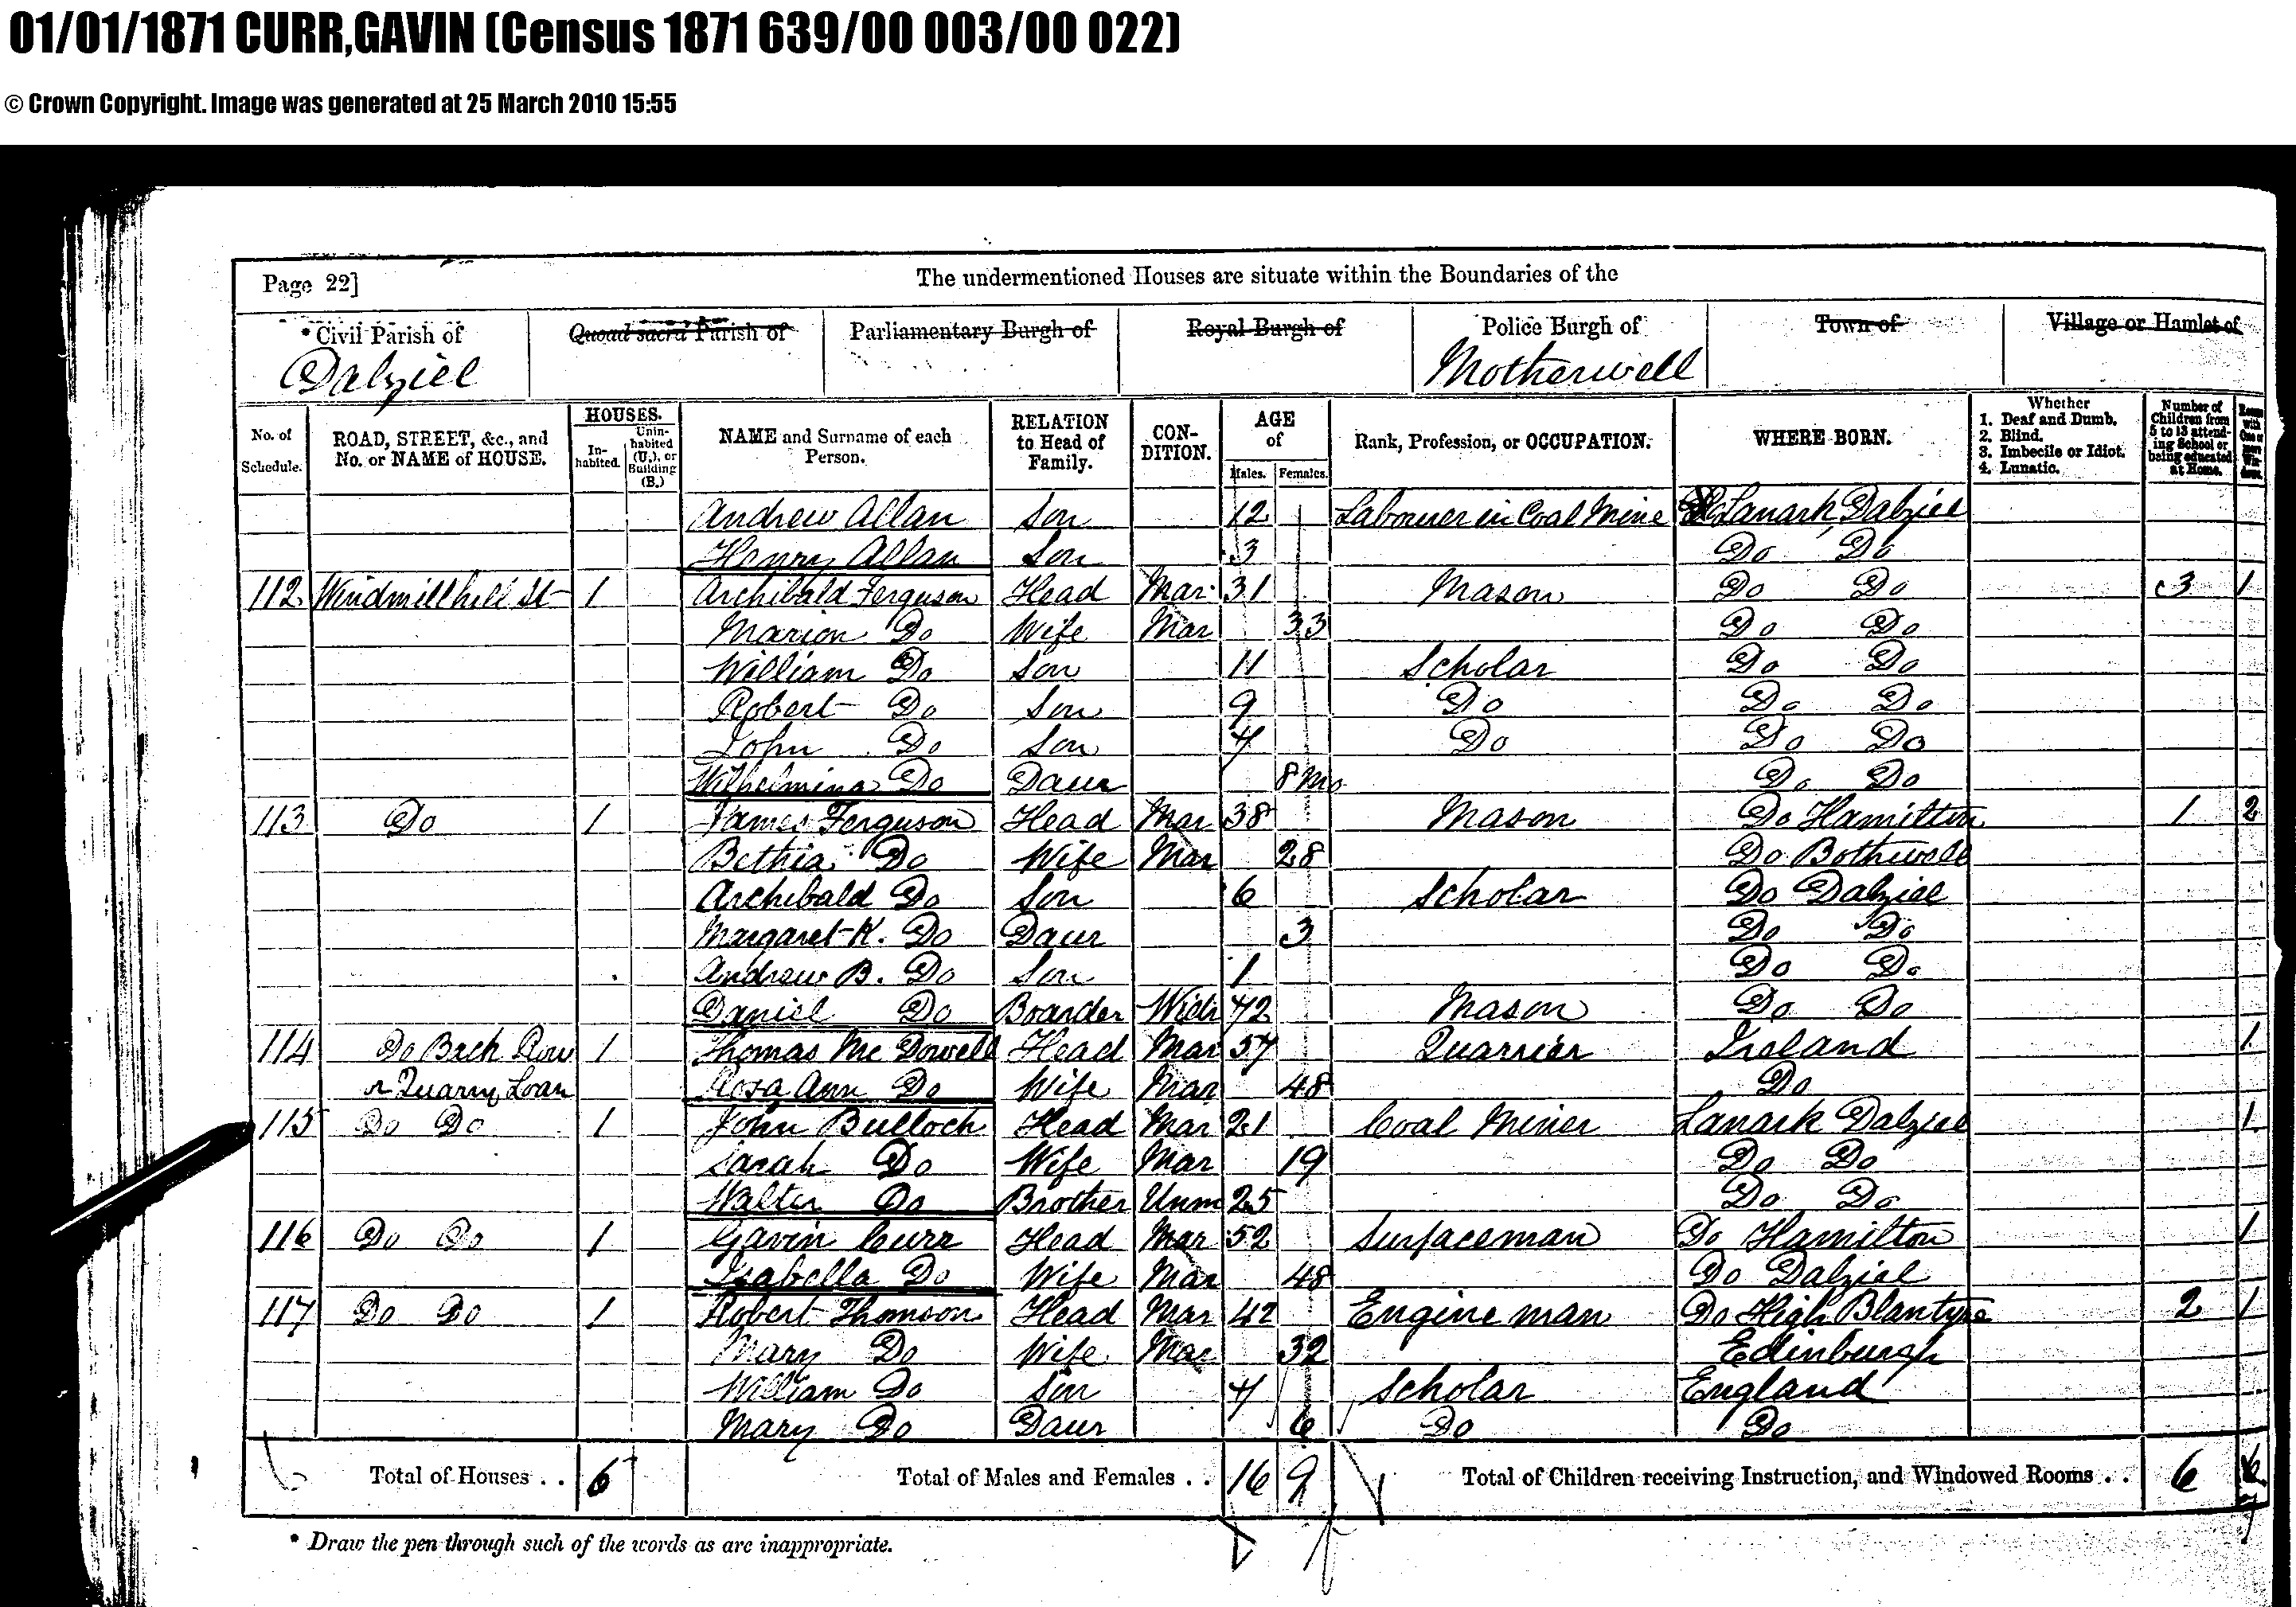 01/01/1871 CURR,GAVIN (Census 1871 639/00 003/00 022)
© Crown Copyright. Image was generated at 25 March 2010 15:55
Page 22] The undermentioned Houses are situate within the Boundaries of the
* Civil Parish of Quoad sacra Parish of Parliamentary Burgh of Royal Burgh of Police Burgh of Town of Village or Hamlet of
Dalziel Motherwell
No. of Schedule. ROAD, STREET, &c., and No. or NAME of HOUSE. HOUSES. Inhabited. Uninhabited (U.), or Building (B.) NAME and Surname of each Person. RELATION to Head of Family. CONDITION. AGE of Males. Females. Rank, Profession, or OCCUPATION. WHERE BORN. Whether 1. Deaf and Dumb. 2. Blind. 3. Imbecile or Idiot. 4. Lunatic. Number of Children from 5 to 13 attending School or being educated at Home. Rooms with One or more Windows.
Andrew Allan Son 12 Labourer in Coal Mine Lanark Dalziel
Henry Allan Son 3 Do Do
112 Windmillhill St 1 Archibald Ferguson Head Mar 31 Mason Do Do 3 1
Marion Do Wife Mar 33 Do Do
William Do Son 11 Scholar Do Do
Robert Do Son 9 Do Do Do
John Do Son 7 Do Do Do
Wilhelmina Do Daur 8 Mo Do Do
113 Do 1 James Ferguson Head Mar 38 Mason Do Hamilton 1 2
Bethia Do Wife Mar 28 Do Bothwell
Archibald Do Son 6 Scholar Do Dalziel
Margaret K. Do Daur 3 Do Do
Andrew B. Do Son 1 Do Do
Daniel Do Boarder Widr 72 Mason Do Do
114 Do Back Row 1 Thomas Mc Dowell Head Mar 57 Quarrier Ireland 1
or Quarry Loan Rosa Ann Do Wife Mar 48 Do
115 Do Do 1 John Bulloch Head Mar 21 Coal Miner Lanark Dalziel 1
Sarah Do Wife Mar 19 Do Do
Walter Do Brother Unm 25 Do Do
116 Do Do 1 Gavin Curr Head Mar 52 Surfaceman Do Hamilton 1
Isabella Do Wife Mar 48 Do Dalziel
117 Do Do 1 Robert Thomson Head Mar 42 Engine man Do High Blantyre 2 1
Mary Do Wife Mar 32 Edinburgh
William Do Son 7 Scholar England
Mary Do Daur 6 Do Do
Total of Houses . . 6 Total of Males and Females . . 16 9 Total of Children receiving Instruction, and Windowed Rooms . . 6 7
* Draw the pen through such of the words as are inappropriate.